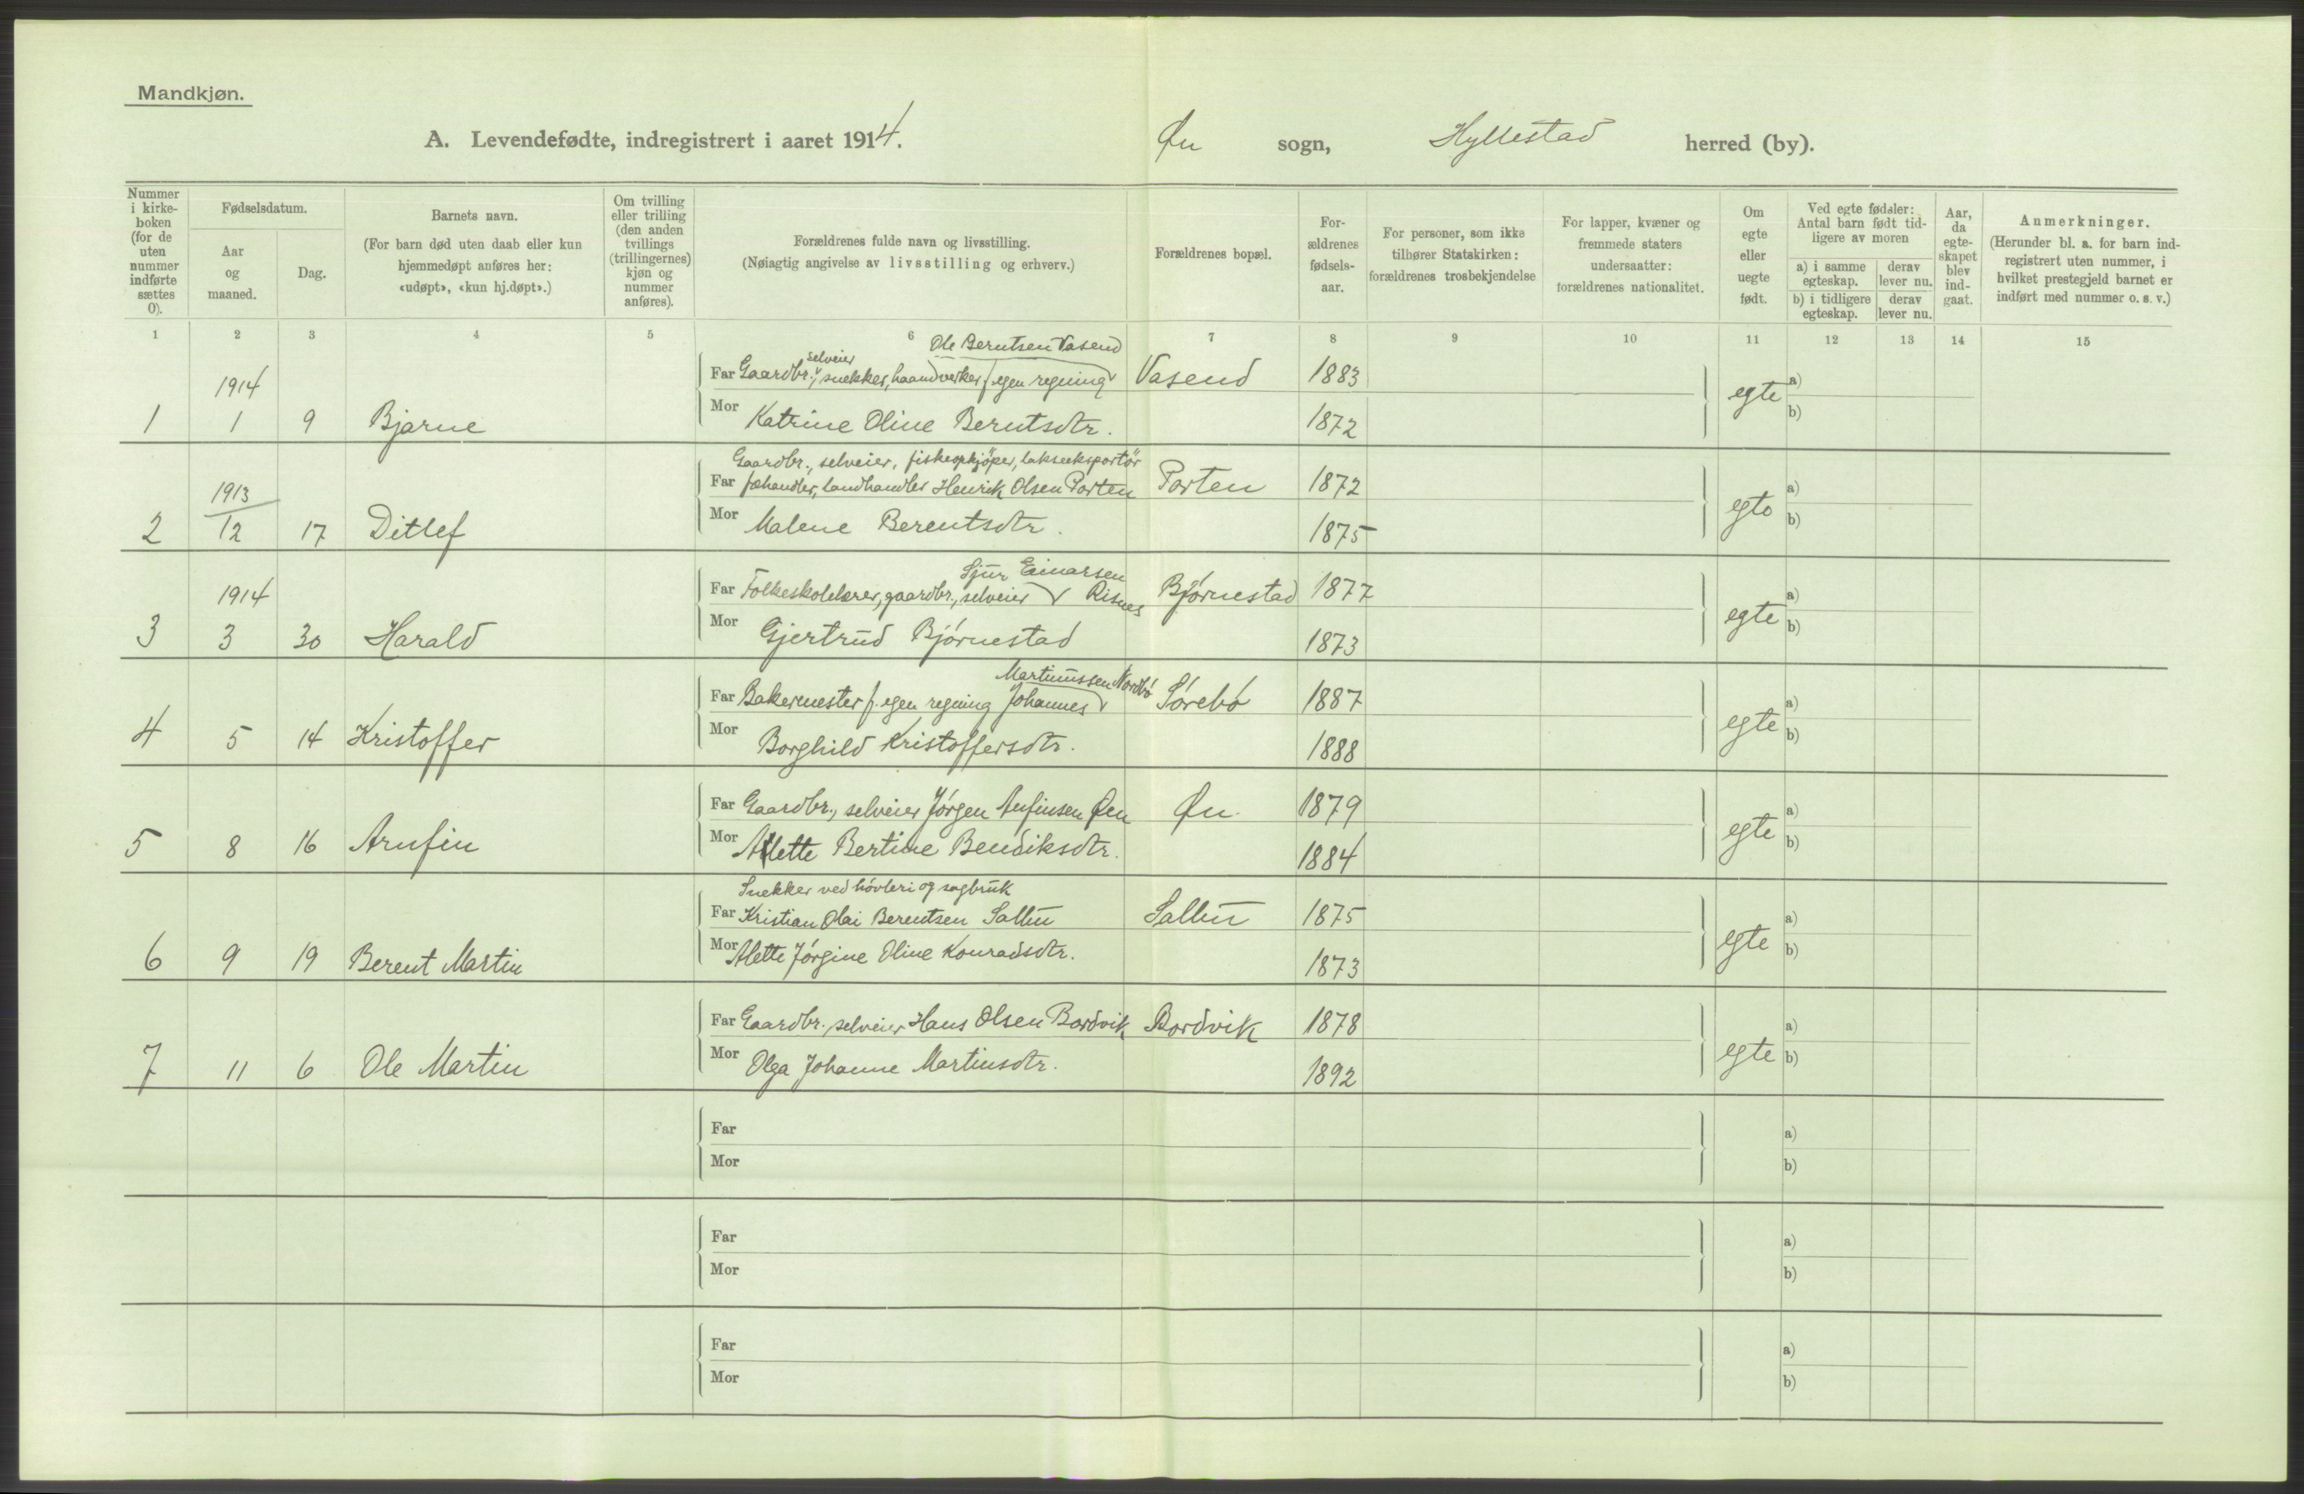 Mandkjøn.
A. Levendefødte, indregistrert i aaret 1914. Øn sogn, Hyllestad herred (by).
Nummer i kirke-boken (for de uten nummer indførte sættes 0).
Fødselsdatum.
Aar og maaned.
Dag.
Barnets navn.
(For barn død uten daab eller kun hjemmedøpt anføres her: «udøpt», «kun hj.døpt».)
Om tvilling eller trilling (den anden tvillings (trillingernes) kjøn og nummer anføres).
Forældrenes fulde navn og livsstilling.
(Nøiagtig angivelse av livsstilling og erhverv.)
Forældrenes bopæl.
For-ældrenes fødsels-aar.
For personer, som ikke tilhører Statskirken: forældrenes trosbekjendelse
For lapper, kvæner og fremmede staters undersaatter: forældrenes nationalitet.
Om egte eller uegte født.
Ved egte fødsler: Antal barn født tid-ligere av moren
a) i samme egteskap.
derav lever nu.
b) i tidligere egteskap.
derav lever nu.
Aar, da egte-skapet blev ind-gaat.
Anmerkninger.
(Herunder bl. a. for barn ind-registrert uten nummer, i hvilket prestegjeld barnet er indført med nummer o. s. v.)
1 2 3 4 5 6 7 8 9 10 11 12 13 14 15
Ole Berntsen Vasend
selveier
1914
Far Gaardbr., snekker, haandverker f. egen regning Vasend 1883
1 1 9 Bjarne
Mor Katrine Oline Berntsdtr. 1872
egte a) b)
Gaardbr., selveier, fiskeopkjöper, lakseeksportör
1913
Far fæhandler, landhandler Henrik Olsen Porten Porten 1872
2 12 17 Ditlef
Mor Malene Berentsdtr. 1875
egte a) b)
Sjur Einarsen
1914
Far Folkeskolelærer, gaardbr., selveier Risnes Bjørnestad 1877
3 3 30 Harald
Mor Gjertrud Bjørnestad 1873
egte a) b)
Martinussen Nordbø
Far Bakermester f. egen regning Johannes Sørebø 1887
4 5 14 Kristoffer
Mor Borghild Kristoffersdtr. 1888
egte a) b)
Far Gaardbr., selveier Jørgen Anfinsen Øen Øn 1879
5 8 16 Arnfin
Mor Alette Bertine Bendiksdtr. 1884
egte a) b)
Snekker ved høvleri og sagbruk
Far Kristian Olai Berentsen Salbu Salbu 1875
6 9 19 Berent Martin
Mor Alette Jørgine Oline Konradsdtr. 1873
egte a) b)
Far Gaardbr., selveier Hans Olsen Bordvik Bordvik 1878
7 11 6 Ole Martin
Mor Olga Johanne Martinsdtr. 1892
egte a) b)
Far a)
Mor b)
Far a)
Mor b)
Far a)
Mor b)